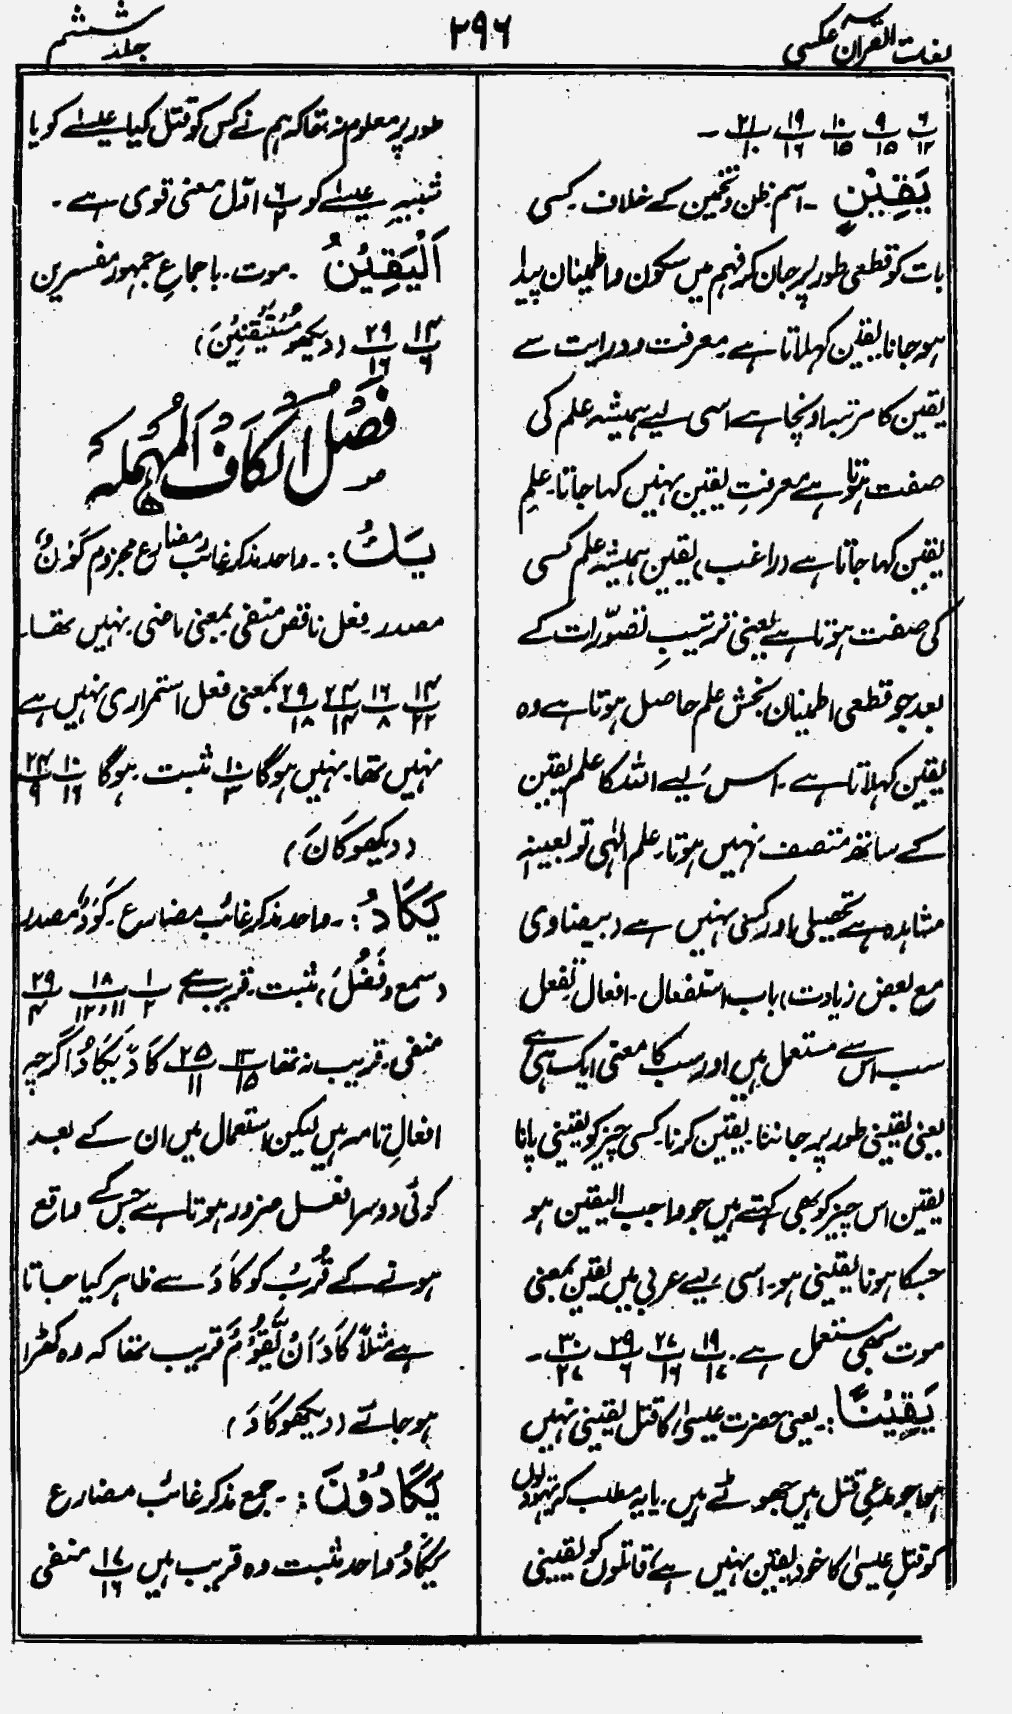 لغات القرآن عکسی
۲۹۶
جلد ششم
۶/۱۲ ۹/۱۵ ۱۰/۱۵ ۱۹/۱۶ ۲۱/۱۰ -
يَقِيْنٍ - اسم ظن و تخمین کے خلاف۔ کسی
بات کو قطعی طور پر جان کر فہم میں سکون و اطمینان پیدا
ہو جانا یقین کہلاتا ہے۔ معرفت و درایت سے
یقین کا مرتبہ اونچا ہے اسی لیے ہمیشہ علم کی
صفت ہوتا ہے معرفتِ یقین نہیں کہا جاتا۔ علمِ
یقین کہا جاتا ہے (راغب) یقین ہمیشہ علم کسی
کی صفت ہوتا ہے یعنی ترتیبِ تصوّرات کے
بعد جو قطعی اطمینان بخش علم حاصل ہوتا ہے وہ
یقین کہلاتا ہے۔ اس لیے اللہ کا علم یقین
کے ساتھ متصف نہیں ہوتا۔ علم الٰہی تو بعینہٖ
مشاہدہ ہے تحصیلی اور کسبی نہیں ہے (بیضاوی
مع بعض زیادت) باب استفعال۔ افعال تفعل
سب اس سے مستعمل ہیں اور سب کا معنی ایک ہی ہے
یعنی یقینی طور پر جاننا یقین کرنا۔ کسی چیز کو یقینی پانا
یقین اس چیز کو بھی کہتے ہیں جو واجب الیقین ہو
جسکا ہونا یقینی ہو۔ اسی لیے عربی میں یقین بمعنی
موت بھی مستعمل ہے۔ ۱۹/۱۷ ۲۷/۱۶ ۲۹/۶ ۳۰/۲۷ -
يَقِيْنًا : یعنی حضرت عیسیٰ کا قتل یقینی نہیں
ہوا جو مدعیِ قتل ہیں جھوٹے ہیں۔ یا یہ مطلب کہ یہودیوں
کو قتلِ عیسیٰ کا خود یقین نہیں ہے قاتلوں کو یقینی
طور پر معلوم نہ تھا کہ ہم نے کس کو قتل کیا عیسےٰ کو یا
شبیہِ عیسےٰ کو ۶/۲ اوّل معنی قوی ہے۔
اَلْيَقِيْنُ - موت۔ باجماعِ جمہور مفسرین
۱۴/۶ ۲۹/۱۶ (دیکھو مُسْتَيْقِنِيْنَ)
فصل الكاف المهملة
يَكُ :- واحد مذکر غائب مضارع مجزوم كَوْنٌ
مصدر۔ فعل ناقص منفی بمعنی ماضی۔ نہیں تھا۔
۱۴/۲۲ ۱۶/۸ ۲۴/۱۴ ۲۹/۱۸ بمعنی فعل استمراری نہیں ہے
نہیں تھا۔ نہیں ہوگا ۱۰/۳ ثبت۔ ہوگا ۱۰/۱۶ ۲۴/۹
(دیکھو كَانَ)
يَكَادُ :- واحد مذکر غائب مضارع۔ كَوْدٌ مصدر
(سمع و فَضُلَ) مثبت۔ قریب ہے ۱/۲ ۱۸/۱۲،۱۱ ۲۹/۴
منفی۔ قریب نہ تھا ۱۳/۱۵ ۲۵/۱۱ كَادَ يَكَادُ اگرچہ
افعالِ تامہ ہیں لیکن استعمال میں ان کے بعد
کوئی دوسرا فعل ضرور ہوتا ہے جس کے واقع
ہونے کے قُرب کو كَادَ سے ظاہر کیا جاتا
ہے مثلاً كَادَ اَنْ يَّقُوْمَ قریب تھا کہ وہ کھڑا
ہو جائے (دیکھو كَادَ)
يَكَادُوْنَ :- جمع مذکر غائب مضارع
يَكَادُ واحد مثبت وہ قریب ہیں ۱۷/۱۶ منفی